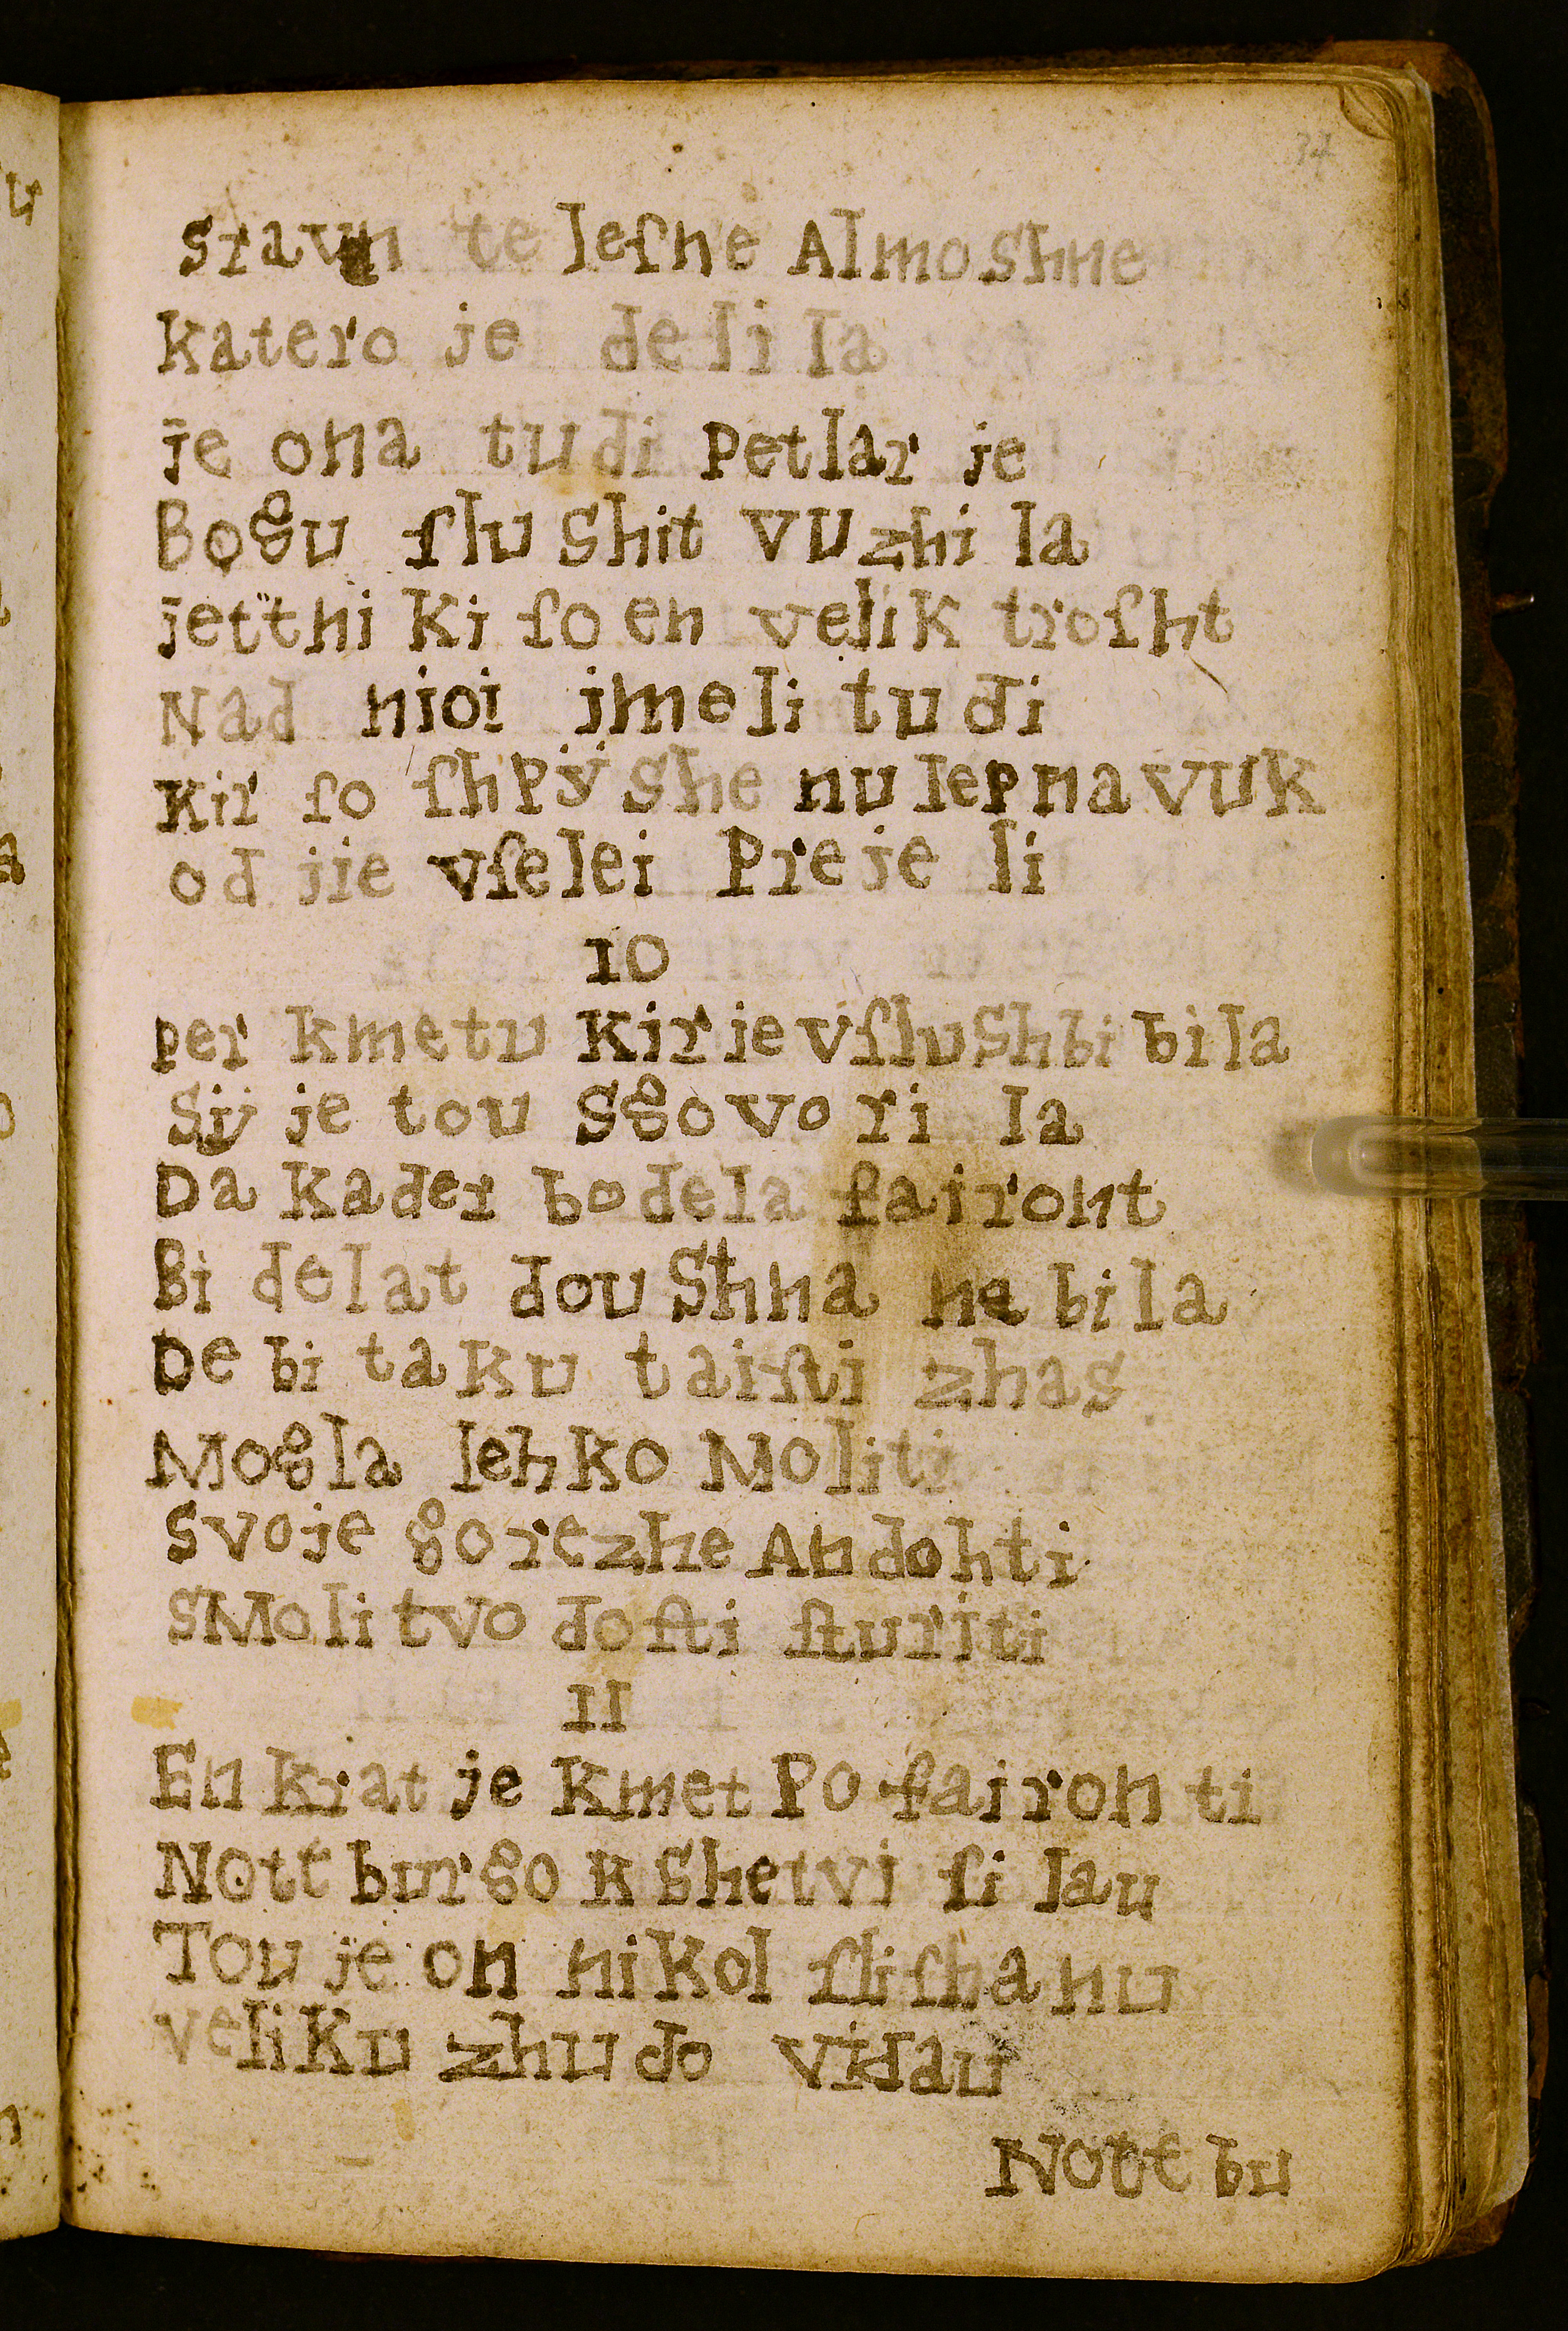 34
stavn te leſne Almoshne
katero je deli la
je ona tudi petlar je
Bogu ſlu shit vuzhi la
jetthi ki ſo en velik troſht
Nad nioi jmeli tu di
kir ſo ſhpÿ she nu lep na vuk
od jie vſe lei preje li
10
per kmetu kir je vſlushbi bi la
Sÿ je tou sgovo ri la
Da kader bo dela fairont
Bi delat dou shna ne bi la
De bi ta ku taiſti zhas
Mogla lehko Moliti
svoje gorezhe Andohti
sMoli tvo doſti ſturiti
11
En krat je kmet po fairon ti
Nott burgo k shetvi ſi lau
Tou je on nikol ſliſha nu
veliku zhu do vidau
Nott bu